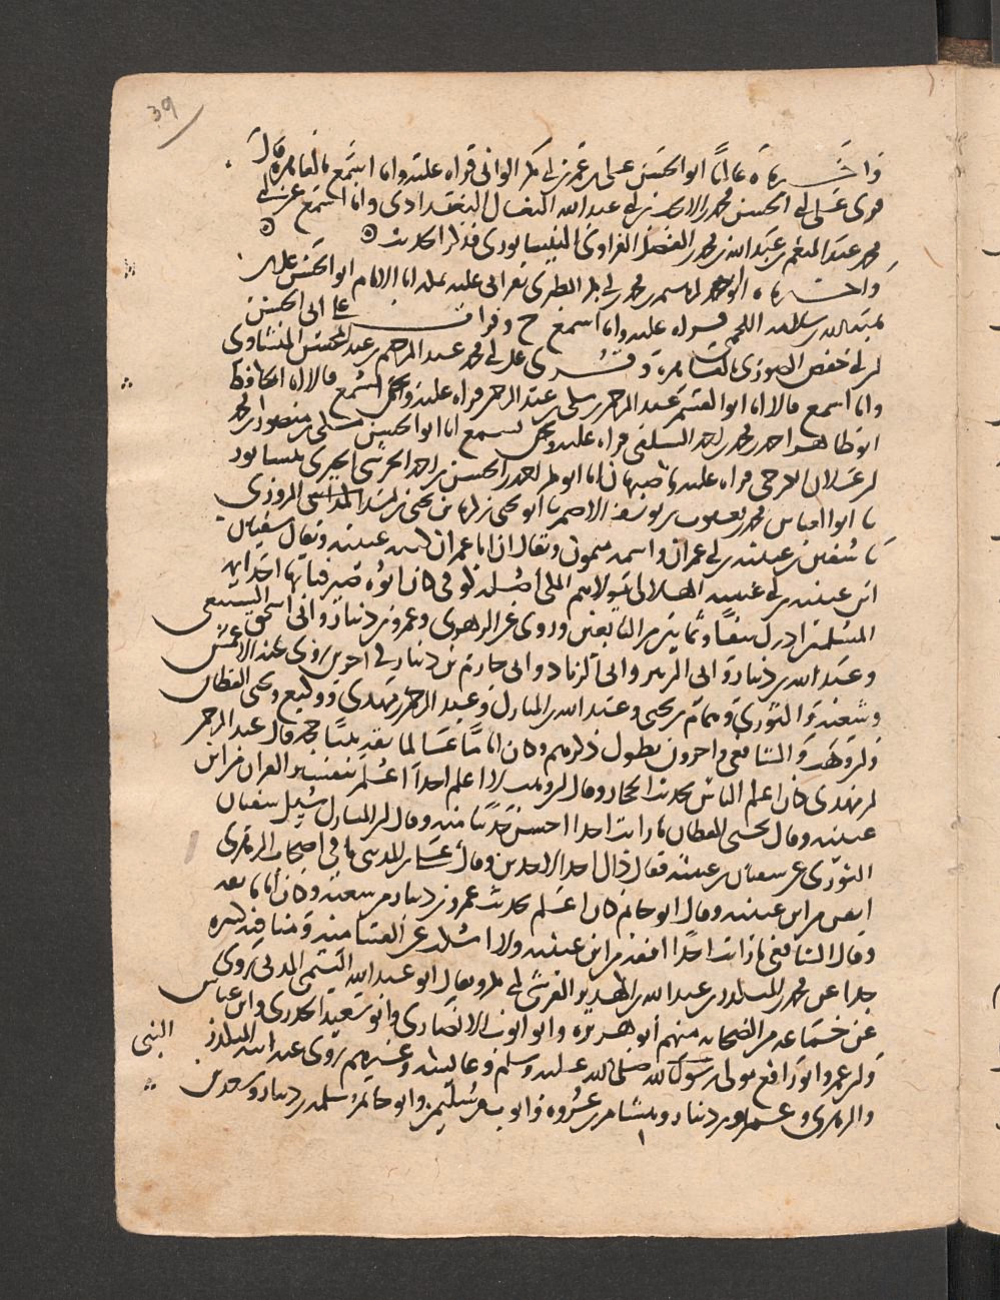 39
واخبرناه عاليا ابو الحسن علي بن عمر بن ابي بكر الواني قراه عليه وانا اسمع بالقاهره قال
قرى على ابي الحسن محمد بن عبد الله البغدادي وانا اسمع عن ابي
محمد عبد المنعم بن عبد الله بن محمد بن الفضل الفراوي النيسابوري فذكر الحديث
واخبرناه ابو محمد القاسم بن محمد بن ابي بكر بقراتي عليه بمكه انا الامام ابو الحسن علي بن
هبه الله بن سلامه اللخمي قراه عليه وانا اسمع ح وقرات على ابي الحسن
بالقاهره وقرى على ابي محمد عبد الرحيم بن عبد المحسن المنشاوي
وانا اسمع قالا انا ابو القسم عبد الرحمن بن مكي بن عبد الرحمن قراه عليه ونحن نسمع قالا انا الحافظ
ابو طاهر احمد بن محمد بن احمد السلفي قراه عليه ونحن نسمع انا ابو الحسن مكي بن منصور بن محمد
بن علان الكرجي قراه عليه باصبهان انا ابو بكر احمد بن الحسن بن احمد الحرشي الحيري بنيسابور
نا ابو العباس محمد بن يعقوب بن يوسف الاصم نا ابو يحيى زكريا بن يحيى بن اسد المروزي
نا سفين بن عيينه بن ابي عمران واسمه ميمون ويقال ان ابا عمران كنيه عيينه ويقال سفيان
ابن عيينه بن ابي عيينه الهلالي مولاهم المكي اصله كوفي كان ابوه صيرفيا بها احد ايمه
المسلمين ادرك نيفا وثمانين من التابعين وروى عن الزهري وعمرو بن دينار وابي اسحق السبيعي
وعبد الله بن دينار وابي الزبير وابي الزناد وابي حازم بن دينار في اخرين روى عنه الاعمش
وشعبه والثوري وهمام بن يحيى وعبد الله بن المبارك وعبد الرحمن بن مهدي ووكيع ويحيى القطان
وابن وهب والشافعي واخرون يطول ذكرهم وكان اماما عالما ثقه ثبتا حجه قال عبد الرحمن
بن مهدي كان اعلم الناس بحديث الحجاز وقال ابن وهب لا اعلم احدا اعلم بتفسير القران من ابن
عيينه وقال يحيى القطان ما رايت احدا احسن حديثا منه وقال ابن المبارك سيل سفيان
الثوري عن سفيان بن عيينه فقال ذاك احد الاحدين وقال علي بن المديني ما في اصحاب الزهري
اتقن من ابن عيينه وقال ابو حاتم كان اعلم بحديث عمرو بن دينار من شعبه وكان اماما ثقه
وقال الشافعي ما رايت احدا افقه من ابن عيينه ولا اكف عن الفتيا منه ومناقبه كثيره
جدا عن محمد بن المنكدر بن عبد الله بن الهدير القرشي ابي بكر ويقال ابو عبد الله التيمي المدني روى
عن جماعه من الصحابه منهم ابو هريره وابو ايوب الانصاري وابو سعيد الخدري وابن عباس
وابن عمر وابو رافع مولى رسول الله صلى الله عليه وسلم وعايشه وغيرهم روى عنه ابنه المنكدر
والزهري وعمرو بن دينار وهشام بن عروه وابو حازم سلمه بن دينار وسعد بن